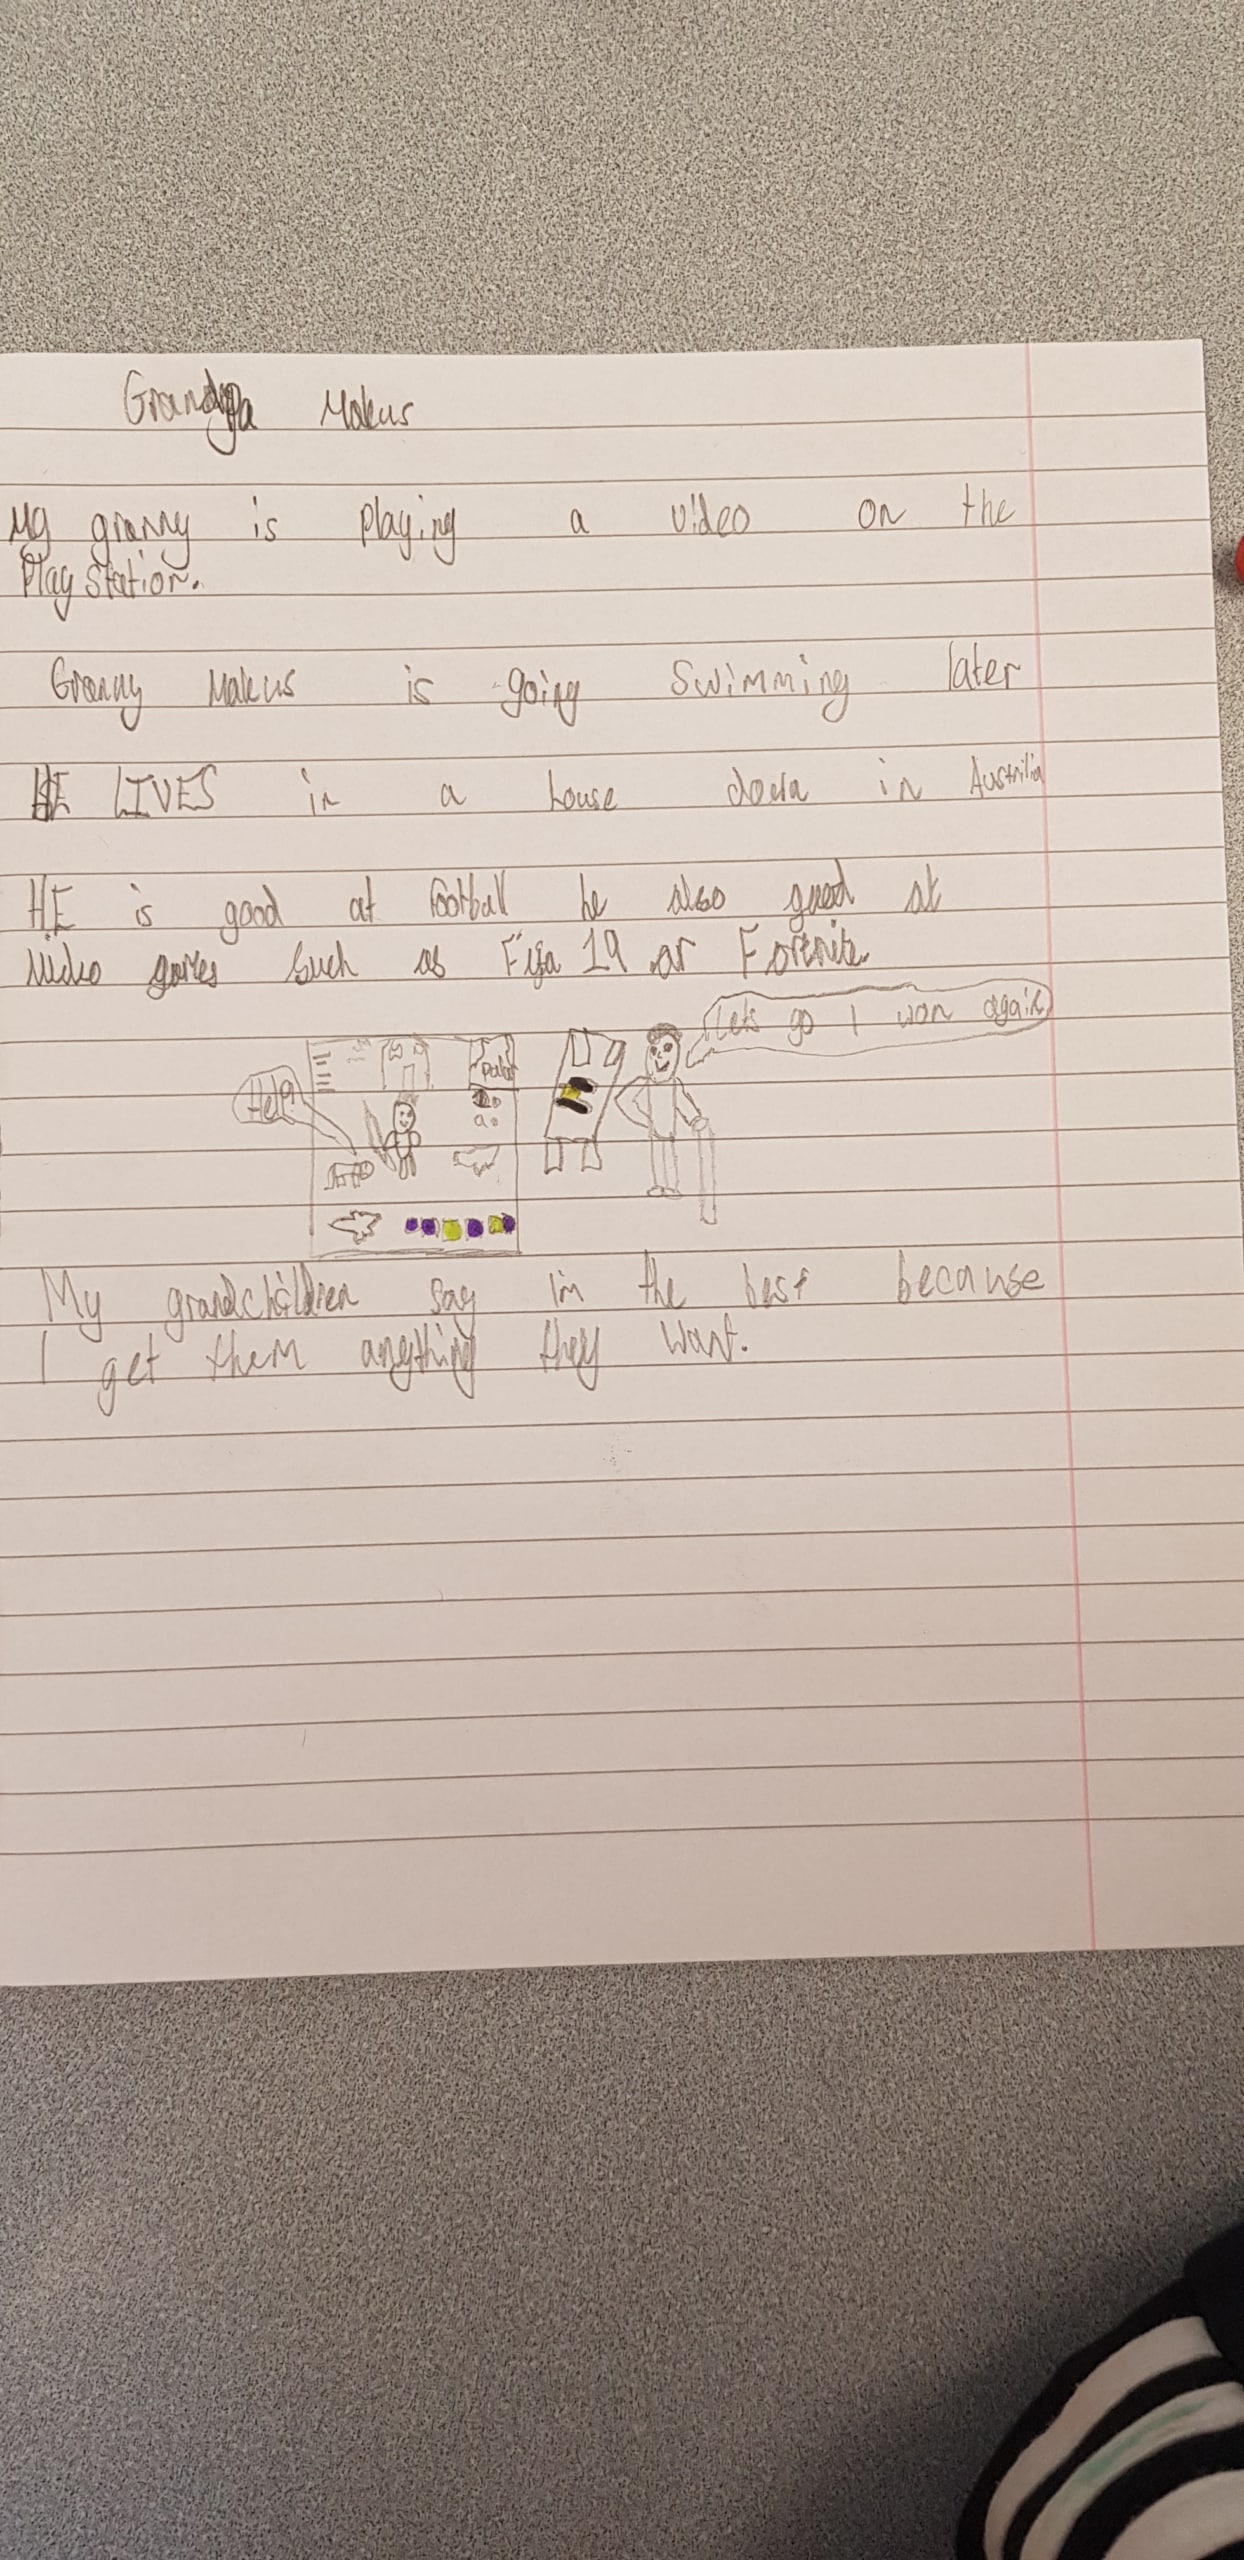 Grandpa Makus
My granny is playing a video on the
Play Station.
Granny Makus is going swimming later
HE LIVES in a house down in Austrilia
HE is good at football he also good at
video games such as Fifa 19 or Fortnite.
Lets go I won again
Help!
My grandchildren say im the best because
I get them anything they want.